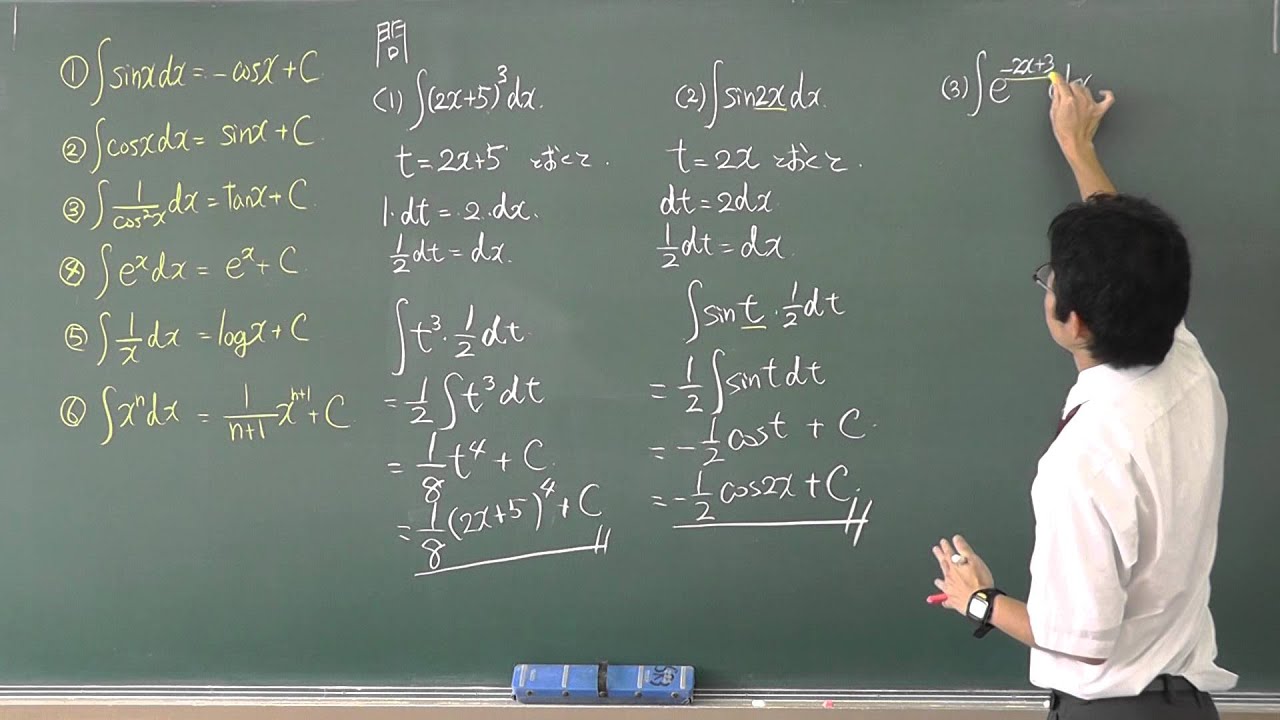 ① ∫sinxdx = -cosx + C
② ∫cosxdx = sinx + C
③ ∫1/cos²x dx = tanx + C
④ ∫eˣdx = eˣ + C
⑤ ∫1/x dx = logx + C
⑥ ∫xⁿdx = 1/(n+1) xⁿ⁺¹ + C
問
(1) ∫(2x+5)³dx.
t = 2x+5 とおくと.
1·dt = 2·dx.
1/2 dt = dx.
∫t³·1/2 dt.
= 1/2 ∫t³dt
= 1/8 t⁴ + C.
= 1/8 (2x+5)⁴ + C
(2) ∫sin2xdx.
t = 2x とおくと.
dt = 2dx.
1/2 dt = dx.
∫sint·1/2 dt
= 1/2 ∫sintdt
= -1/2 cost + C.
= -1/2 cos2x + C.
(3) ∫e⁻²ˣ⁺³dx